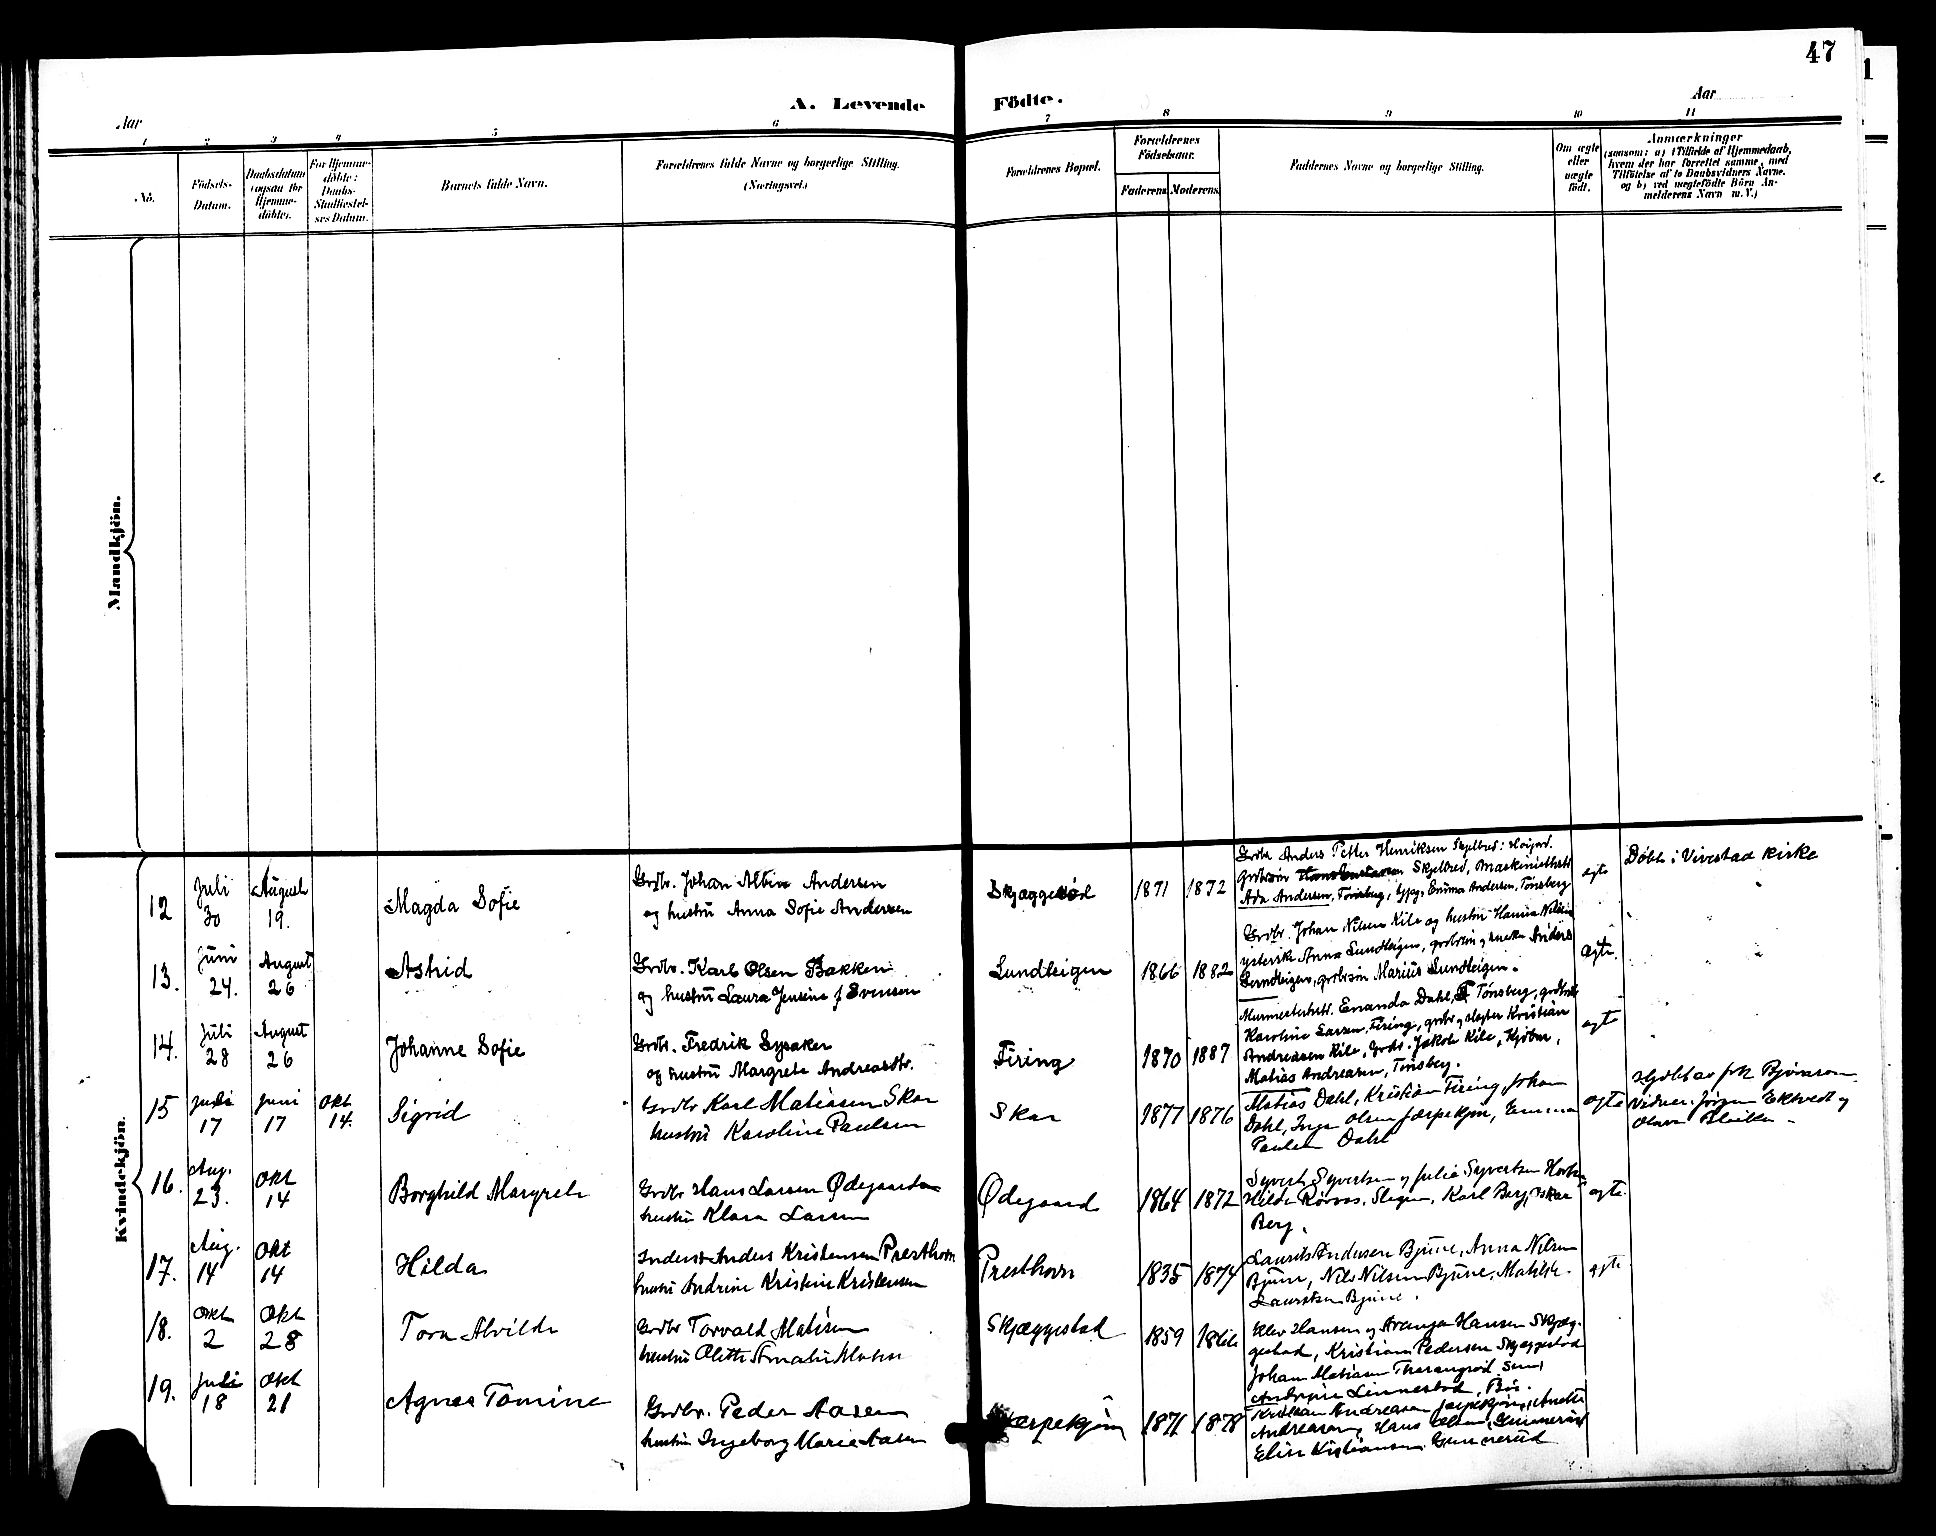 47
A. Levende Födte.
Aar
Aar
1 2 3 4 5 6 7 8 9 10 11
No.
Födsels-
Datum.
Daabsdatum
(ogsaa for
Hjemme-
döbte).
For Hjemme-
döbte:
Daabs-
Stadfæstel-
ses Datum.
Barnets fulde Navn.
Forældrenes fulde Navne og borgerlige Stilling.
(Næringsvei.)
Forældrenes Bopæl.
Forældrenes
Födselsaar.
Faderens. Moderens.
Faddernes Navne og borgerlige Stilling.
Om ægte
eller
uægte
födt.
Anmærkninger
(saasom: a) i Tilfælde af Hjemmedaab,
hvem der har forrettet samme, med
Tilföielse af to Daabsvidners Navne.
og b) ved uægtefödte Börn An-
melderens Navn m. V.)
Mandkjön.
Kvindekjön.
12
Juli
30
August
19.
Magda Sofie
Grdbr. Johan Albin Andersen
og hustru Anna Sofie Andersen
Skjæggesød
1871 1872
Grdbr Anders Petter Henriksen Skjelbred: Høijord.
grdbrsøn Skjelbred, Maskinisthstr
Ada Andersen, Tønsberg, Emma Andersen, Tønsberg
ægte
Døbt i Vivestad kirke
13.
Juni
24.
August
26
Astrid
Grdbr. Karl Olsen Bakken
og hustru Laura Jensine f Svensen
Lundteigen
1866 1882
Grdbr. Johan Nilsen Kile og hustru Hanna Nilsen
Anna Lundteigen, grdbrsøn Anders
Lundteigen, grdbrsøn Marius Lundteigen.
Ægte.
14.
Juli
28
August
26
Johanne Sofie
Grdbr. Fredrik Lysaker
og hustru Margrete Andreasdtr.
Firing
1870 1887
Murmesterhstr. Enanda Dahl, Tønsberg,
Karoline Larsen, Firing, Kristian
Andreasen Kile, Jakob Kile,
Matias Andreasen, Tønsberg.
ægte
15
Juli
17
Juni
17
Okt
14.
Sigrid
Grdbr Karl Matiasen Skar
hustru Karoline Paulsen
Skar
1877 1876
Matias Dahl, Kristian Firing, Johan
Dahl, Inga Olsen Jærpekjøn, Emma
Paulsen Dahl
ægte
Vidner: Jørgen Ektvedt og
16.
Aug.
23.
Okt
14
Borghild Margrete
Grdbr Hans Larsen Ødegaarden
hustru Klara Larsen
Ødegaard
1864 1872
Syvert Syvertsen og Julia Syvertsen
Hilda Slagen, Karl Berg,
Berg.
ægte.
17.
Aug.
14
Okt
14
Hilda
Inderst Anders Kristensen Presthovn
hustru Andrine Kristine Kristensen
Presthovn
1835 1874
Laurits Andersen Bjune, Anna Nilsen
Bjune, Nils Nilsen Bjune, Matilde
Lauritsen Bjune.
ægte
18.
Okt
2
Okt
28
Tora Alvilde
Grdbr Torvald Matisen
hustru
Skjæggestad
1859 1866
Hansen og Hansen Skjæg-
gestad, Kristian Pedersen Skjæggestad
Johan Matiasen
Linnestad,
19.
Juli
18
Okt
21
Agnes Tomine
Grdbr. Peder Aasen
hustru Ingeborg Marie Aasen
Jærpekjøn
1871 1878
Kristian Andreasen Jærpekjøn,
Andreasen, Hans Olsen,
Elise Kristiansen Gunnerud